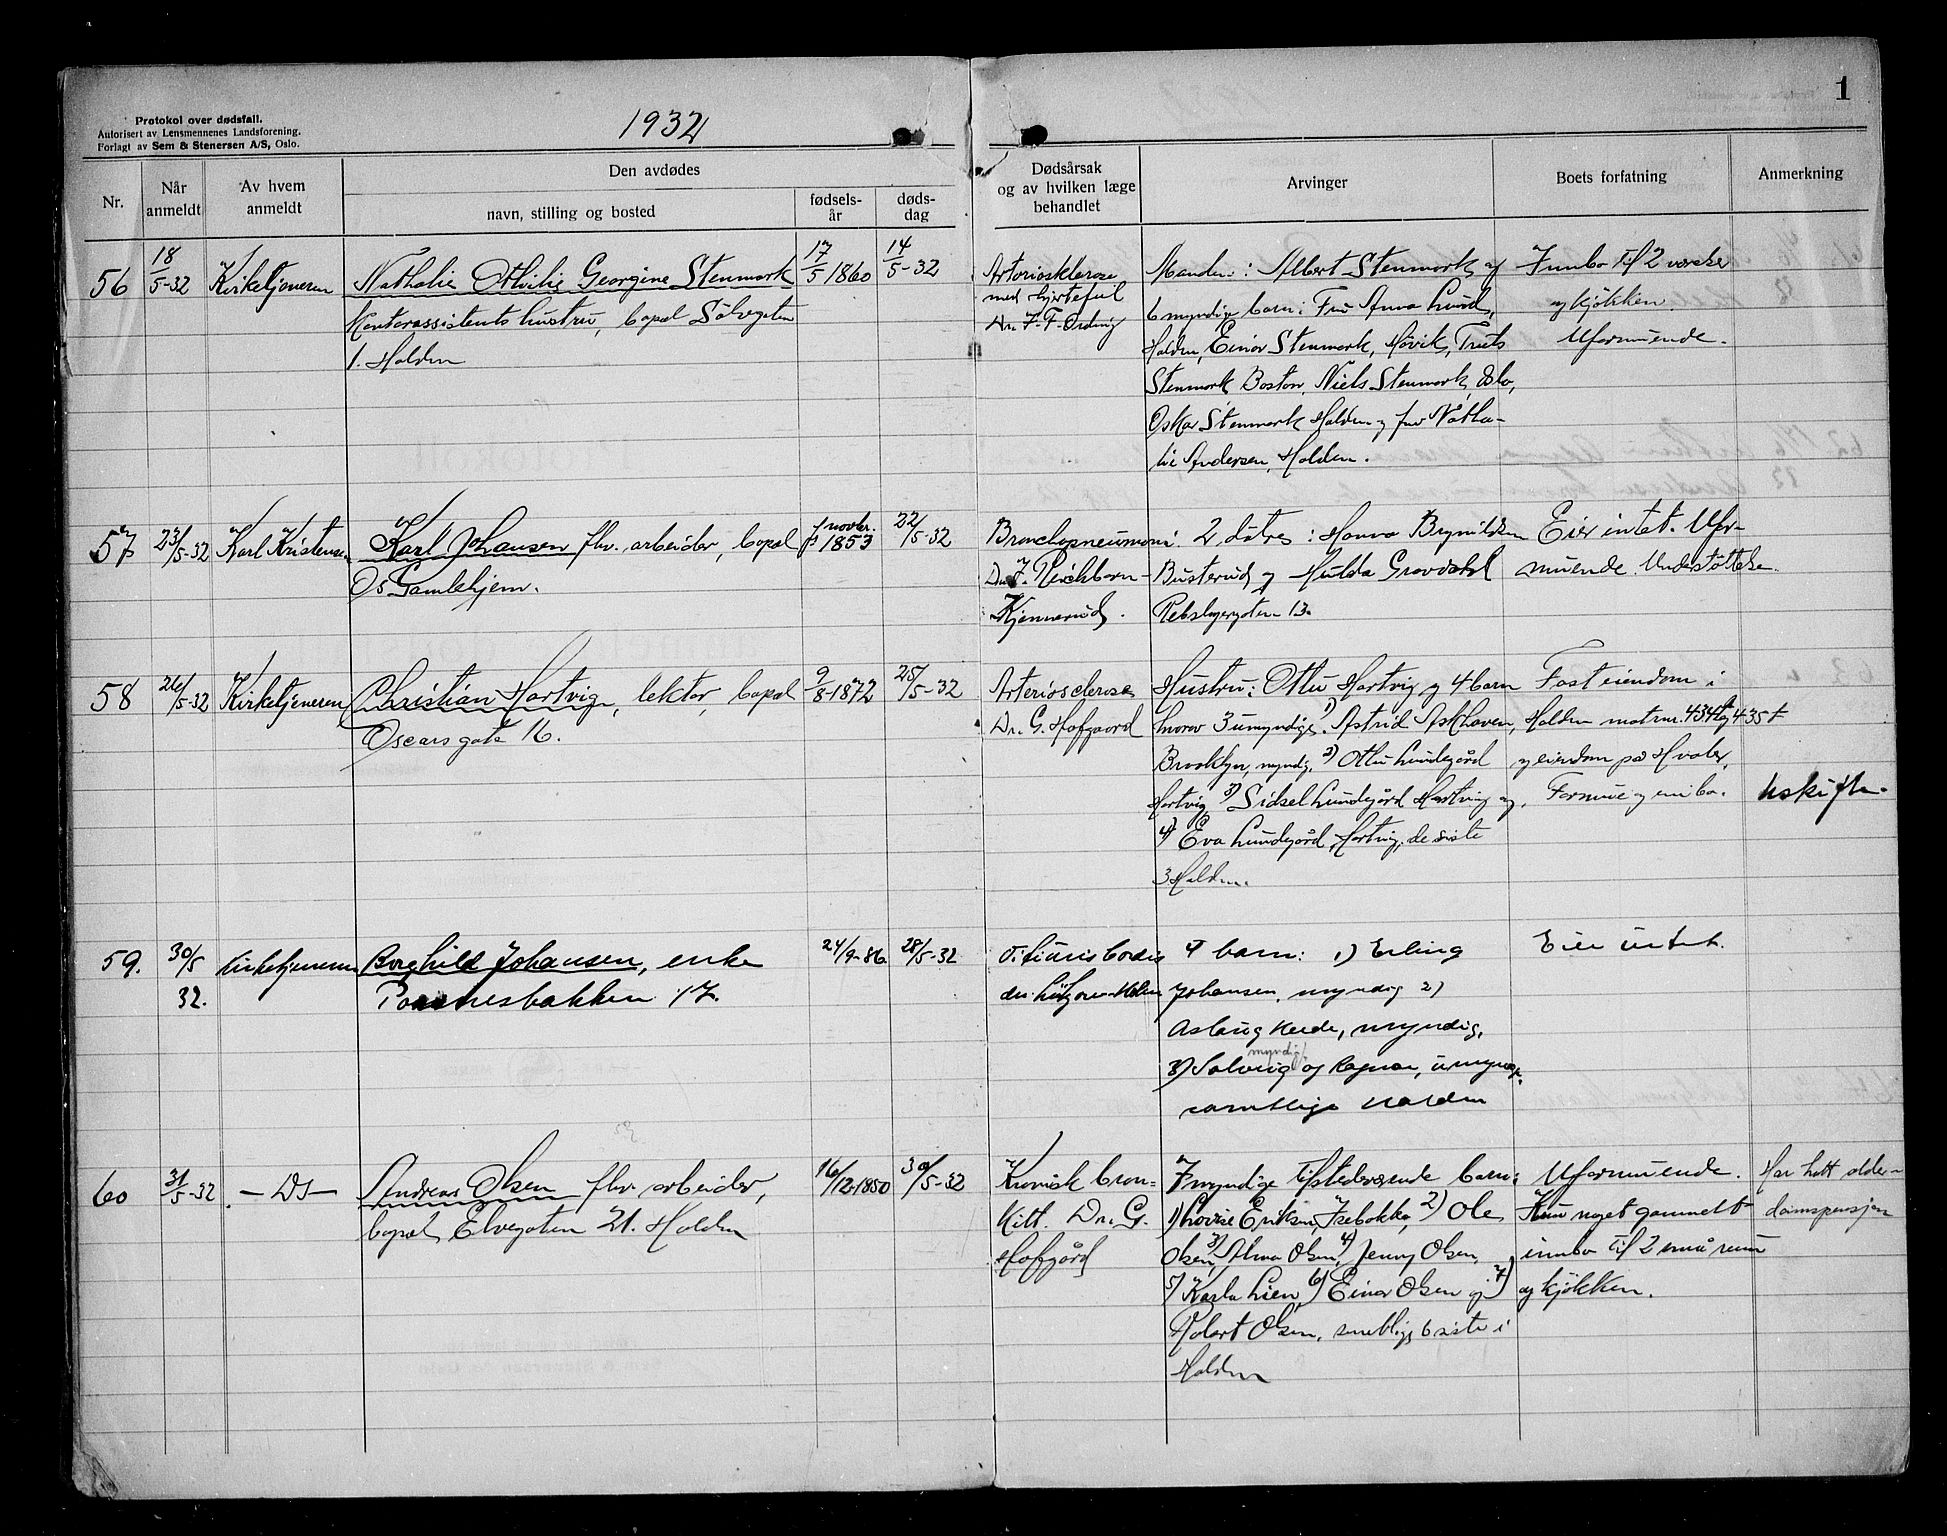 1
Protokol over dødsfall.
Autorisert av Lensmennenes Landsforening.
Forlagt av Sem & Stenersen A/S, Oslo.
1932
Nr.
Når anmeldt
Av hvem anmeldt
Den avdødes
navn, stilling og bosted
fødsels-år
døds-dag
Dødsårsak og av hvilken læge behandlet
Arvinger
Boets forfatning
Anmerkning
56
18/5-32
Kirketjeneren
Nathalie Othilie Georgine Stenmark
Kontorassistents hustru, bopæl Sølvgaten
1. Halden
17/5 1860
14/5-32
Arteriosklerose
med hjertefeil
Dr. F. F. Ording
Manden: Albert Stenmark og
6 myndige barn: Fru Anna Lund,
Halden, Einar Stenmark, Høvik,
Stenmark Boston, Niels Stenmark, Oslo,
Oskar Stenmark Halden og fru Natha-
lie Andersen, Halden.
Innbo til 2 værelser
og kjøkken
Uformuende.
57
23/5-32
Karl Kristensen
Karl Johansen fhv. arbeider, bopæl
Os Gamlehjem.
novbr. 1853
22/5-32
Bronchopneumoni.
Dr. J. Reichborn-
Kjennerud.
2 døtre: Hanna Brynildsen
Busterud og Hulda Gravdahl
Rebslagergaten 13.
Eier intet. Ufor-
muende. Understøttelse.
58
26/5-32
Kirketjeneren
Christian Hartvig, lektor, bopæl
Oscarsgate 16.
9/8-1872
25/5-32
Arteriosclerose
Dr. G. Hofgaard
Hustru: Othu Hartvig og 4 barn
hvorav 3 umyndige. 1) Astrid Askhaven,
Brooklyn, myndig, 2) Othu Lundegård
Hartvig 3) Sidsel Lundegård Hartvig og
4) Eva Lundegård Hartvig, de siste
3 Halden.
Fast eiendom i
Halden matrnr. 434 og 435
og eiendom på Hvaler,
Formue og innbo.
Uskifte.
59.
30/5 32.
Kirketjeneren
Borghild Johansen, enke
17.
24/9-86
28/5-32
Vitium cordis
4 barn: 1) Erling
Johansen, myndig 2)
Aslaug, myndig,
myndig
3) Solveig og Ragnar, umyndige.
samtlige Halden
Eier intet.
60
31/5-32
- Ds -
Andreas Olsen fhv. arbeider,
bopæl Elvegaten 21. Halden
16/12-1850
30/5-32
Kronisk bron-
kitt. Dr. G.
Hofgård
7 myndige tilstedeværende barn:
1) Lovise Eriksen, Isebakke, 2) Ole
Olsen, 3) Alma Olsen, 4) Jenny Olsen,
5) Karla Lien, 6) Einar Olsen og 7)
Robert Olsen, 6 siste i
Halden
Uformuende.
Kun noget gammelt
innbo til 2 små rum
og kjøkken.
Har hatt alder-
domspensjon